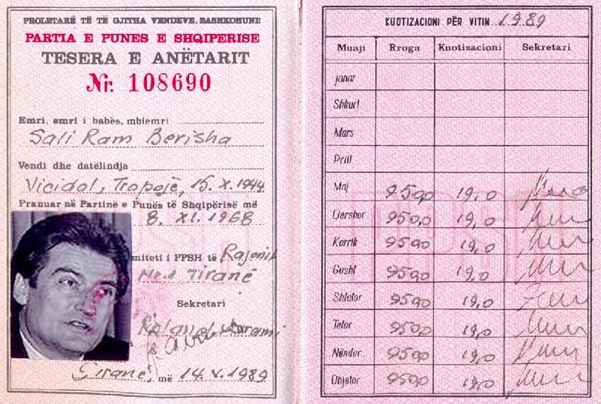 PROLETARË TË TË GJITHA VENDEVE, BASHKOHUNI!
PARTIA E PUNES E SHQIPERISE
TESERA E ANËTARIT
Nr. 108690
Emri, emri i babës, mbiemri
Sali Ram Berisha
Vendi dhe datëlindja
Vicidol, Tropojë, 15.X.1944
Pranuar në Partinë e Punës të Shqipërisë më
8. XI. 1968
miteti i PPSH të Rajonit
Nr. 1 Tiranë
Sekretari
Tiranë, më 14. X. 1989
KUOTIZACIONI PËR VITIN 1989
Muaji Rroga Kuotizacioni Sekretari
Janar
Shkurt
Mars
Prill
Maj 950,0 19,0
Qershor 950,0 19,0
Korrik 950,0 19,0
Gusht 950,0 19,0
Shtator 950,0 19,0
Tetor 950,0 19,0
Nëndor 950,0 19,0
Dhjetor 950,0 19,0